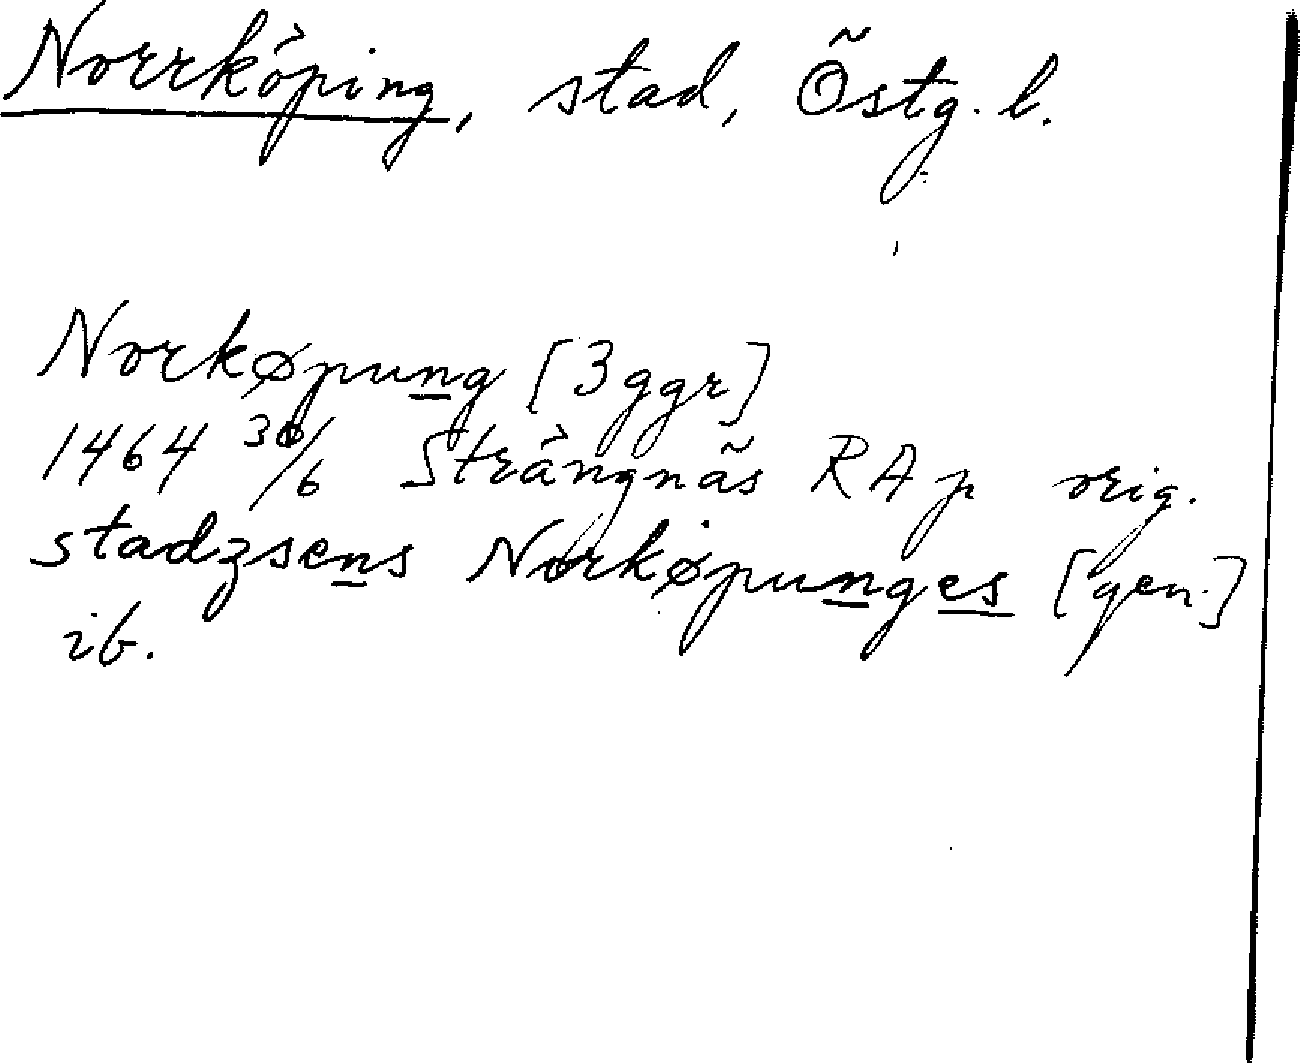 Norrköping, stad, Östg. l.
Norkøpung [3 ggr]
1464 30/6 Strängnäs RAp orig.
stadzsens Norkøpunges [gen.]
ib.